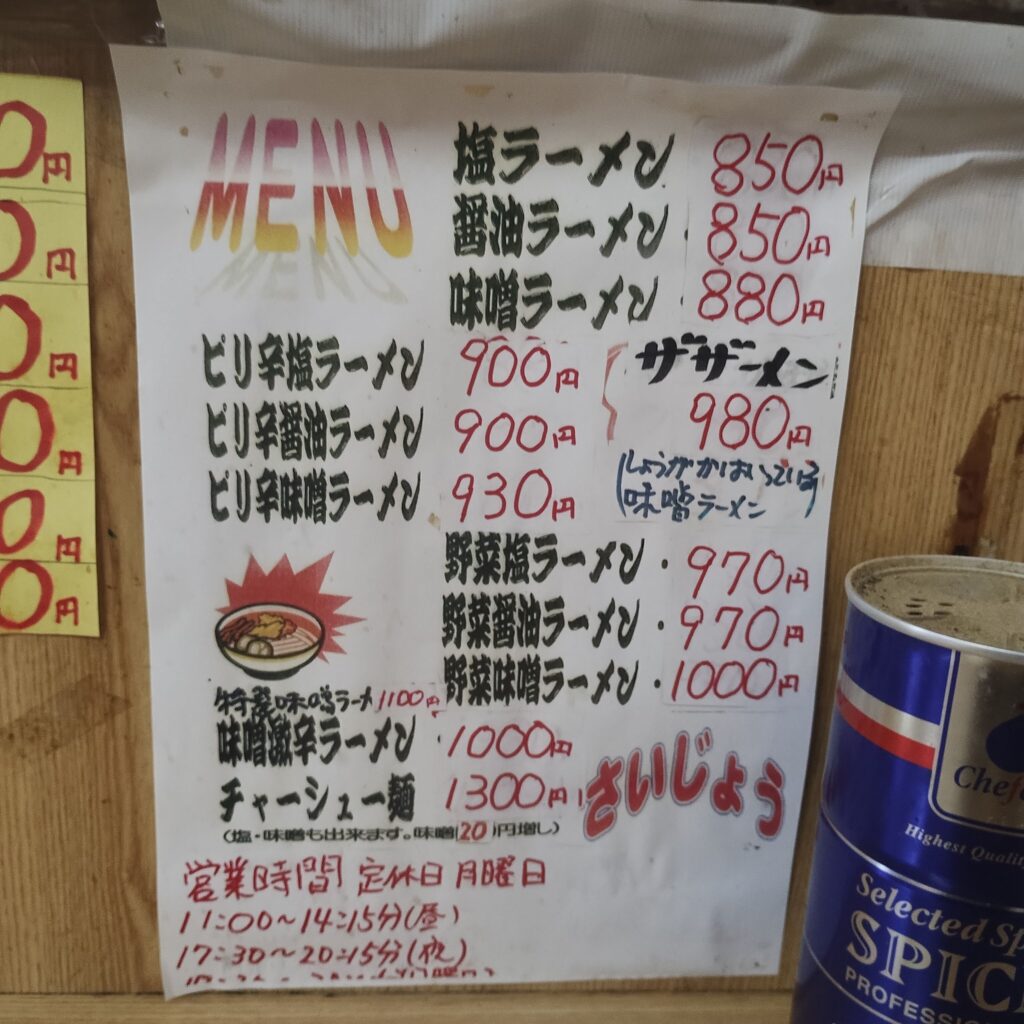 MENU
塩ラーメン 850円
醤油ラーメン・850円
味噌ラーメン・880円
ピリ辛塩ラーメン 900円
ピリ辛醤油ラーメン 900円
ピリ辛味噌ラーメン 930円
ザザーメン
980円
(しょうががはいっている
味噌ラーメン)
野菜塩ラーメン・970円
野菜醤油ラーメン・970円
野菜味噌ラーメン・1000円
特製味噌ラーメ 1100円
味噌激辛ラーメン・1000円
チャーシュー麺 1300円
(塩・味噌も出来ます。味噌20円増し)
さいじょう
営業時間 定休日月曜日
11:00〜14:15分(昼)
17:30〜20:15分(夜)
0円
0円
0円
0円
0円
0円
Chef
Highest Quali
Selected Sp
SPIC
PROFESSIO